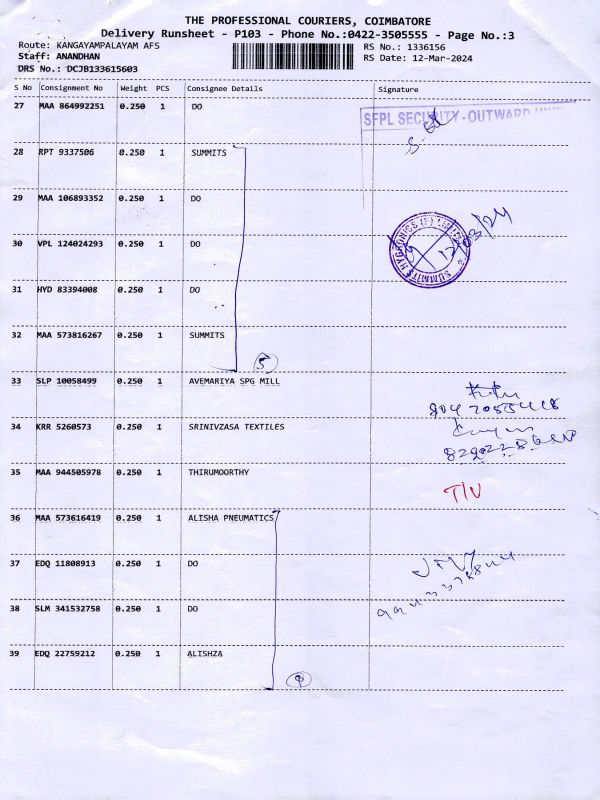 THE PROFESSIONAL COURIERS, COIMBATORE
Delivery Runsheet - P103 - Phone No.:0422-3505555 - Page No.:3
Route: KANGAYAMPALAYAM AFS
RS No.: 1336156
Staff: ANANDHAN
RS Date: 12-Mar-2024
DRS No.: DCJB133615603
S No Consignment No Weight PCS Consignee Details Signature
27 MAA 864992251 0.250 1 DO
SFPL SECURITY - OUTWARD
28 RPT 9337506 0.250 1 SUMMITS
29 MAA 106893352 0.250 1 DO
30 VPL 124024293 0.250 1 DO
SUMMITS HYGRONICS (P) LIMITED
12/03/24
31 HYD 83394008 0.250 1 DO
32 MAA 573816267 0.250 1 SUMMITS
5
33 SLP 10058499 0.250 1 AVEMARIYA SPG MILL
34 KRR 5260573 0.250 1 SRINIVZASA TEXTILES
35 MAA 944505978 0.250 1 THIRUMOORTHY
T/V
36 MAA 573616419 0.250 1 ALISHA PNEUMATICS
37 EDQ 11808913 0.250 1 DO
38 SLM 341532758 0.250 1 DO
39 EDQ 22759212 0.250 1 ALISHZA